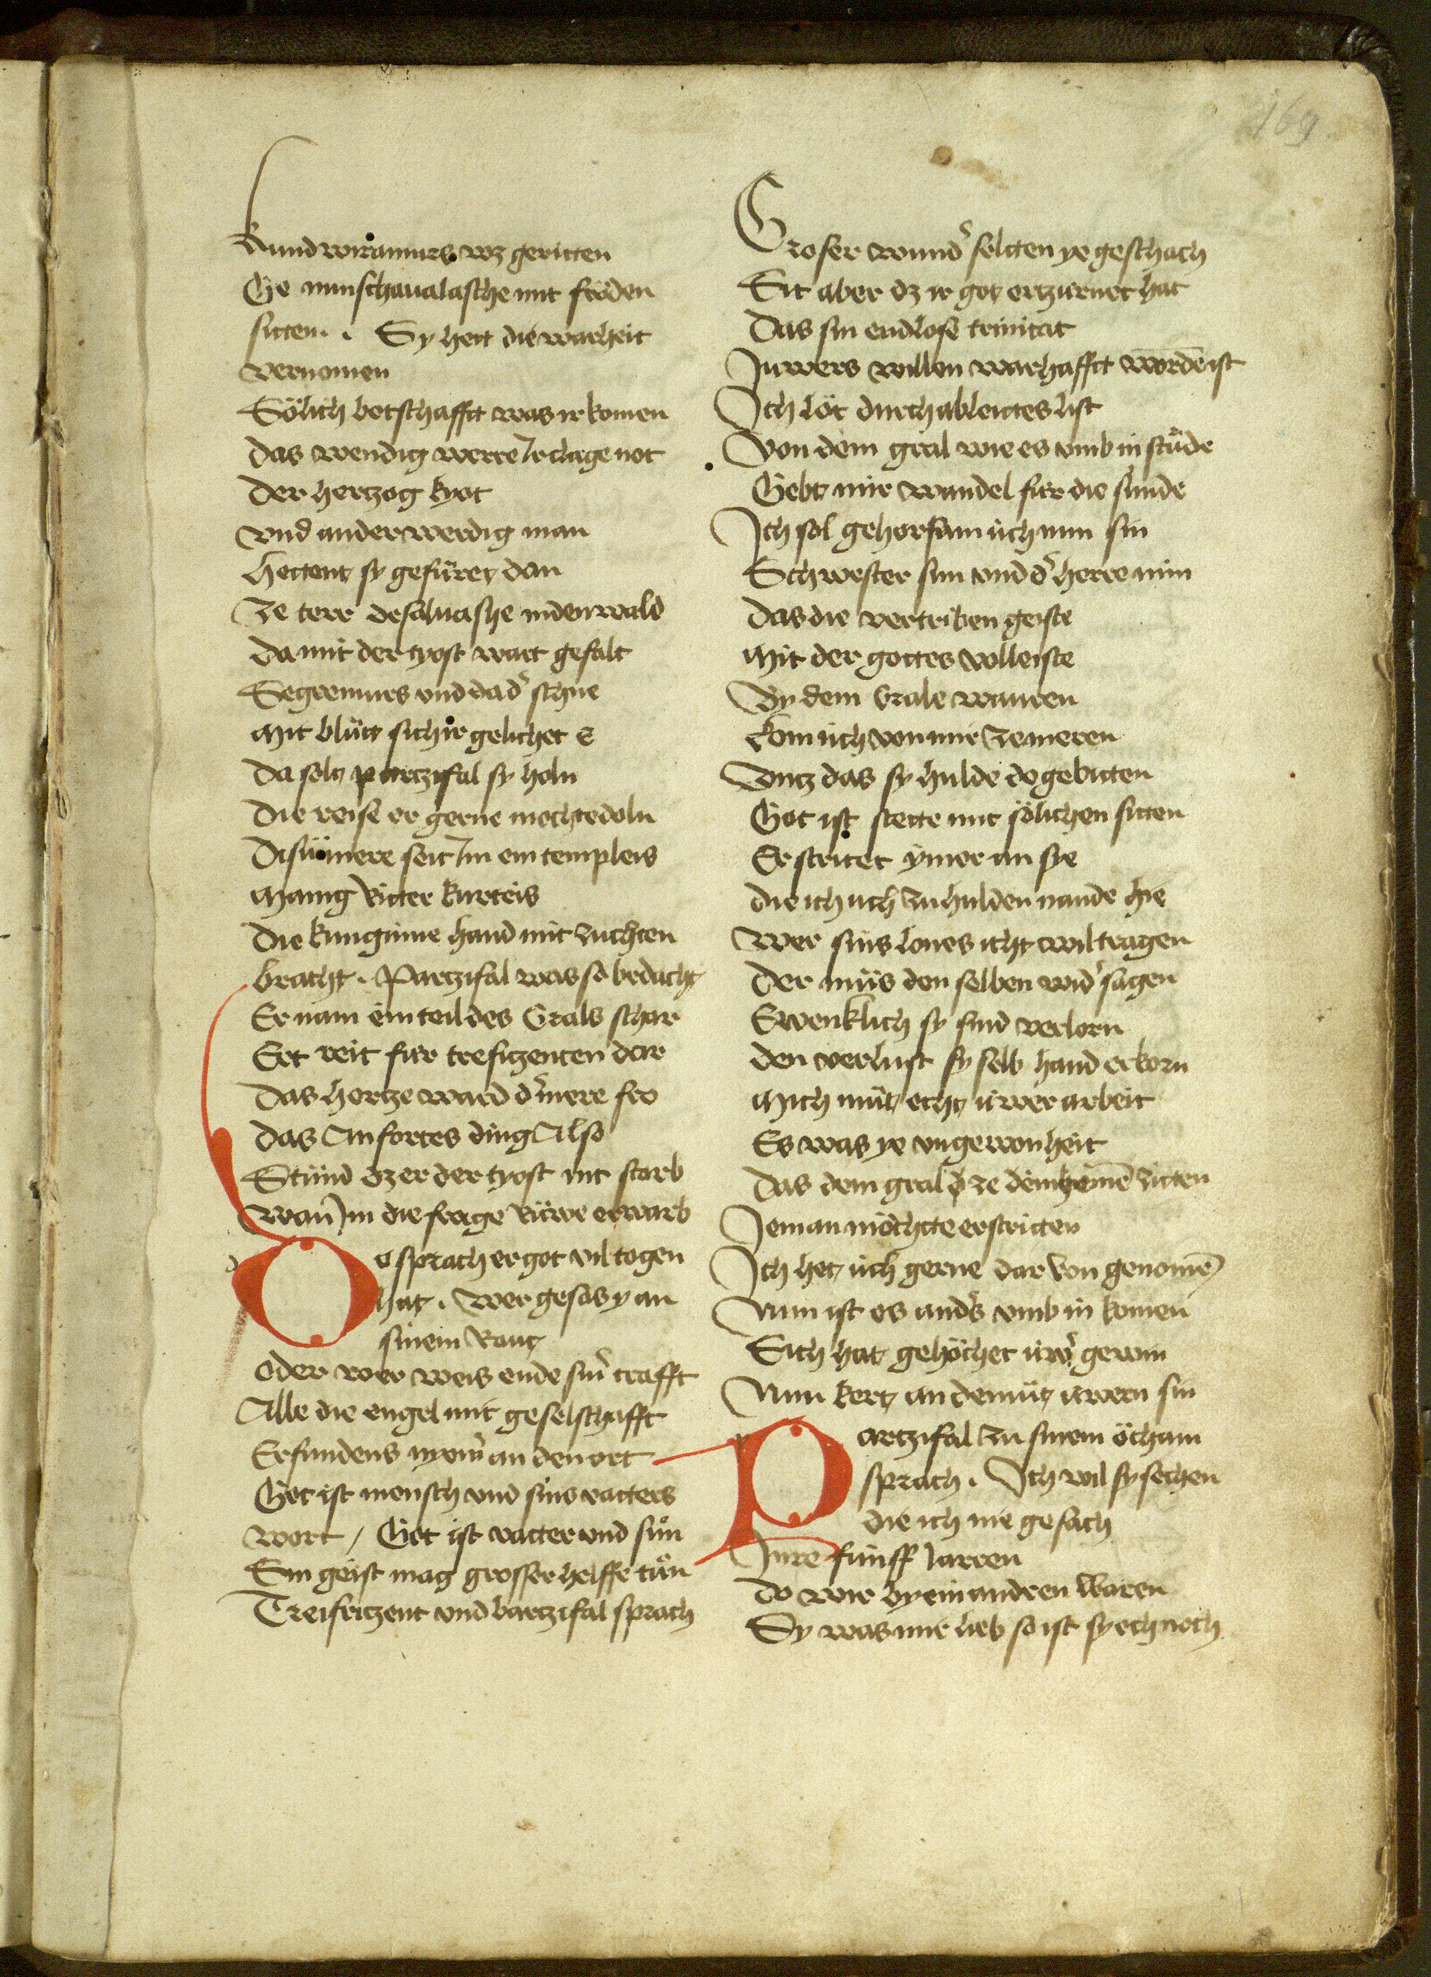 169
Kundwiramurs wz geritten
Ge munschaualasche mit fröden
sitten . Sy hett die warheit
vernomen
Sölich botschafft was ir komen
Das wendig werre Ir clage not
Der hertzog kyot
vnd ander werdig man
Hettent sy gefüret dan
Ze terr desaluashe inden wald
Da mit der tyost wart gefalt
Segremurs vnd da dˀ schne
Mit blůt sich ir gelichet E
Da solt partzifal sy holn
Die reise er gerne mochte doln
Disü mere seit Im ein templeis
Manig Ritter kurteis
Die kunginne hand mit zuchten
bracht . Partzifal was so bedacht
Er nam ein teil des Grals schar
Ert reit für trefizenten dar
Das hertze ward dˀ mere fro
Das Anfortes ding Also
Stůnd dz er der tyost nit starb
Wan̄ Im die frage Růwe erwarb
Do sprach er got vil togen
hat . Wer gesas y an
sinem Raut
Oder wer weis ende sinˀ crafft
Alle die engel mit geselschafft
Erfundens nyemˀ an den ort
Got ist mensch vnd sins vatters
wort / Got ist vatter vnd sůn
Sin geist mag grosser helffe tůn
Treifitzent vnd bartzifal sprach
Groser wundˀ selten ye geschach
Sit aber dz ir got erzürnet hat
Das sin endlose trinitat
Juwers willen warhafft wordē ist
Jch löt durch ableittes list
Von dem gral wie es vmb in stůde
Gebt mir wandel für die sünde
Jch sol gehorsam üch nun sin
Schwester sun vnd dˀ herre min
Das die vertriben geiste
Mit der gottes volleiste
By dem Grale wauren
Kom üch von mir ze meren
Vntz das sy hulde do gebitten
Got ist stette mit sölichen sitten
Er stritet ymer an sye
Die ich üch zu hulden nande hie
Wer sins lones icht wil tragen
Der můs den selben widˀ sagen
Ewenklich sy sind verlorn
Den verlust sy selb hand erkorn
Mich müt echt üwer arbeit
Es was ye vngewonheit
Das dem gral ze dēkeinē zitten
Jeman möchtte erstritten
Jch het üch gerne dar von genomē
Nun ist es andˀs vmb in komen
Sich hat gehöchet üwˀ gewin
Nun kert an demüt üwern sin
Partzifal zu sinem öcham
sprach . Jch wil sy sechen
die ich nie gesach
Jnre fünff Jarren
Do wir by ein andren waren
Sy was mir lieb so ist sy och noch